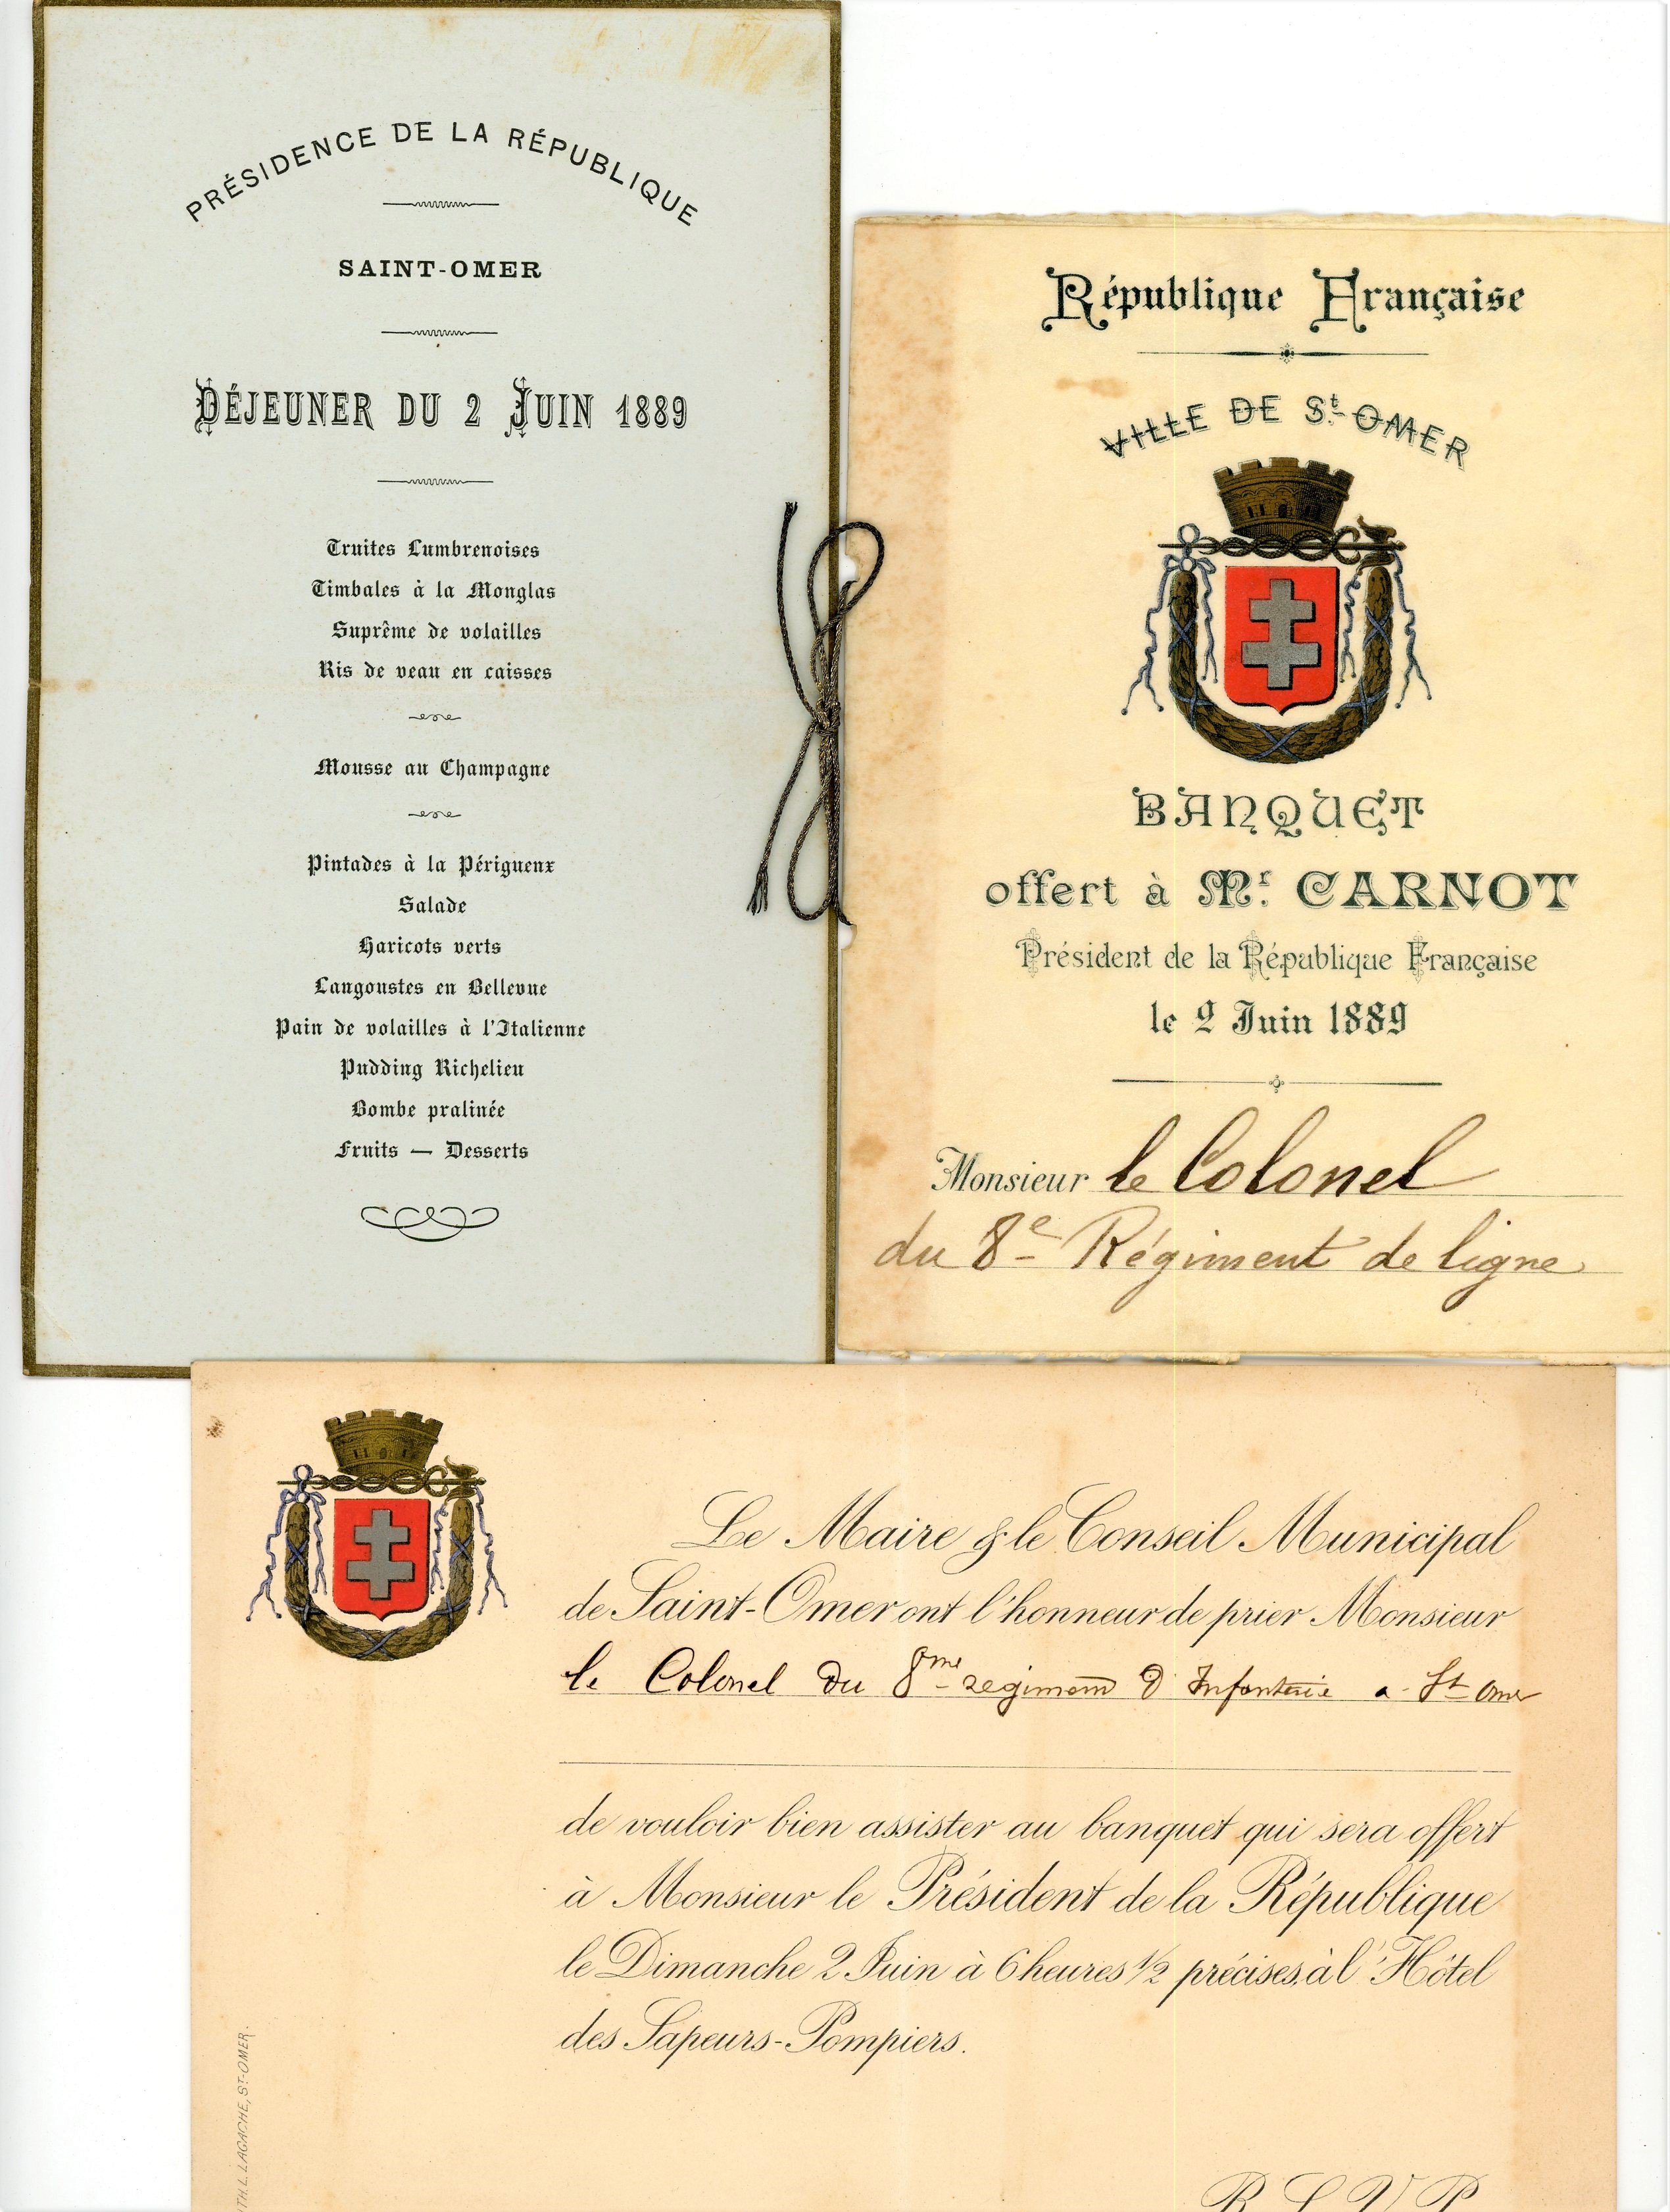 PRÉSIDENCE DE LA RÉPUBLIQUE
SAINT-OMER
DÉJEUNER DU 2 JUIN 1889
Truites Lumbrenoises
Timbales à la Monglas
Suprême de volailles
Ris de veau en caisses
Mousse au Champagne
Pintades à la Périgueux
Salade
Haricots verts
Langoustes en Bellevue
Pain de volailles à l'Italienne
Pudding Richelieu
Bombe pralinée
Fruits — Desserts
République Française
VILLE DE St. OMER
BANQUET
offert à Mr. CARNOT
Président de la République Française
le 2 Juin 1889
Monsieur le Colonel
du 8e Régiment de ligne
Le Maire & le Conseil Municipal
de Saint-Omer ont l'honneur de prier Monsieur
le Colonel du 8me regiment d'Infanterie a St Omer
de vouloir bien assister au banquet qui sera offert
à Monsieur le Président de la République
le Dimanche 2 Juin à 6 heures 1/2 précises, à l'Hôtel
des Sapeurs-Pompiers.
R S V P
TH. L. LAGACHE, ST-OMER.